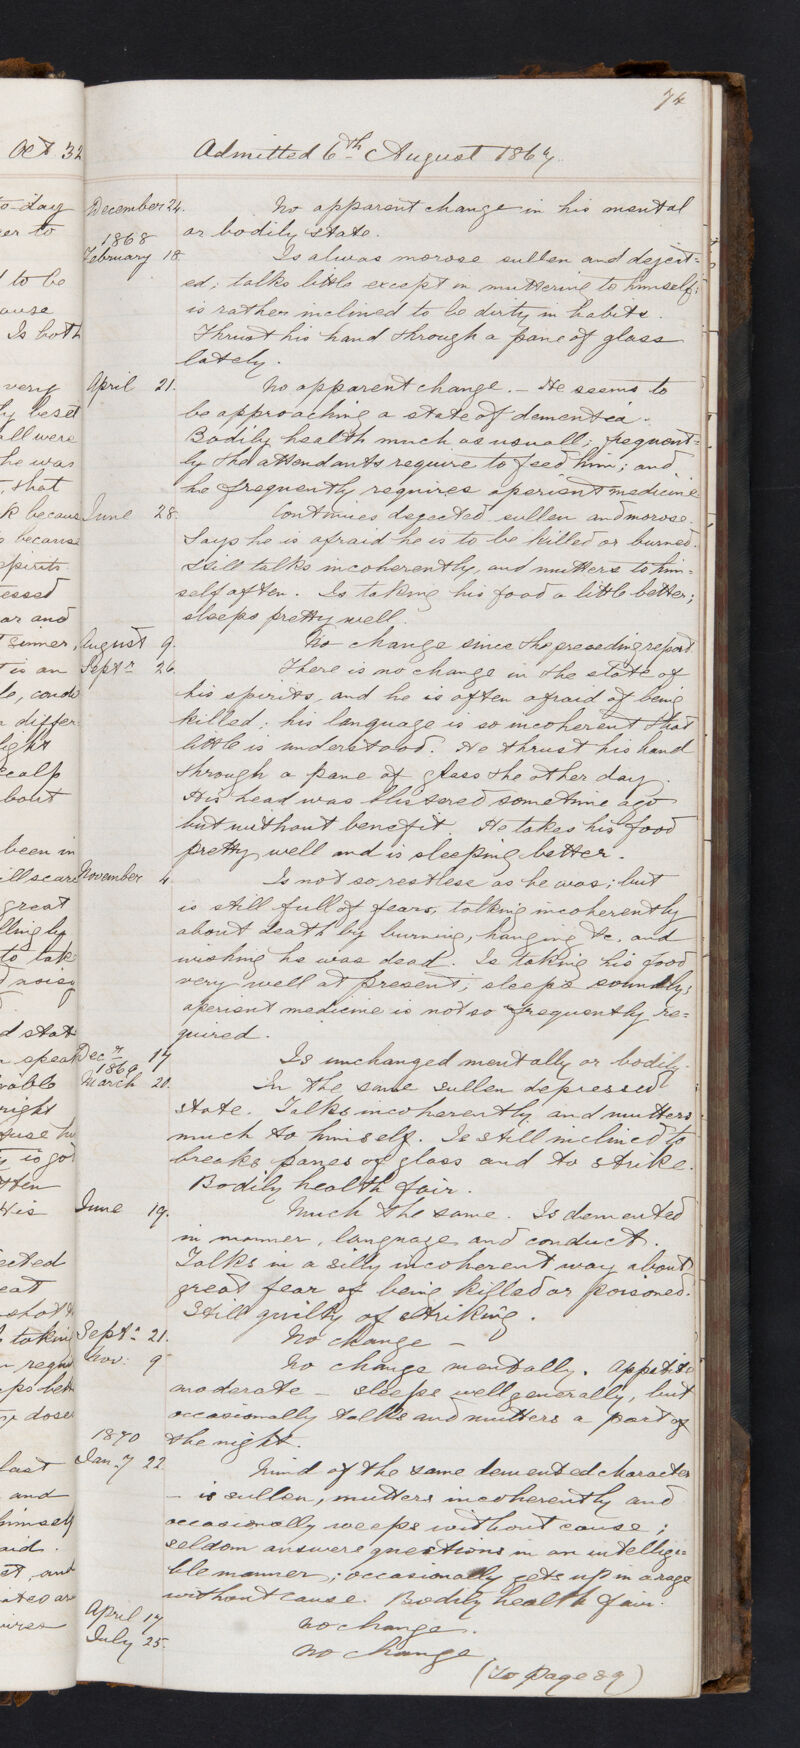 74
Oct 32
Admitted 6th August 1867
December 24. No apparent change in his mental
or bodily state.
1868
February 18. Is always morose sullen and deject=
ed; talks little except in muttering to himself;
is rather inclined to be dirty in habits.
Thrust his hand through a pane of glass
lately.
April 21. No apparent change. – He seems to
be approaching a state of dementia.
Bodily health much as usuall; frequent=
ly the attendants require to feed him; and
he frequently requires aperient medicine
June 28. Continues dejected sullen and morose.
Says he is afraid he is to be killed or burned.
Still talks incoherently, and mutters to him=
self often. Is taking his food a little better;
sleeps pretty well.
August 9. No change since the preceding report.
Septr 26. There is no change in the state of
his spirits, and he is often afraid of being
killed; his language is so incoherent that
little is understood. He thrust his hand
through a pane of glass the other day.
His head was blistered sometime ago
but without benefit. He takes his food
pretty well and is sleeping better.
November 4. Is not so restless as he was; but
is still full of fears, talking incoherently
about death by burning, hanging &c. and
wishing he was dead. Is taking his food
very well at present; sleeps soundly;
aperient medicine is not so frequently re=
quired.
Decr 17 Is unchanged mentally or bodily.
1869
March 21. In the same sullen depressed
state. Talks incoherently and mutters
much to himself. Is still inclined to
breaks panes of glass and to strike.
Bodily health fair.
June 19. Much the same. Is demented
in manner, language and conduct.
Talks in a silly incoherent way about
great fear of being killed or poisoned.
Still guilty of striking.
Septr 21. No change –
Nov: 9 No change mentally. Appetite
moderate – sleeps well generally, but
occasionally talks and mutters a part of
the night.
1870
Jany 22 Mind of the same demented character
– is sullen, mutters incoherently and
occasionally weeps without cause;
seldom answers questions in an intelligi=
ble manner; occasionally gets up in a rage
without cause. Bodily health fair.
April 17 No change.
July 25. No change
(To page 89)